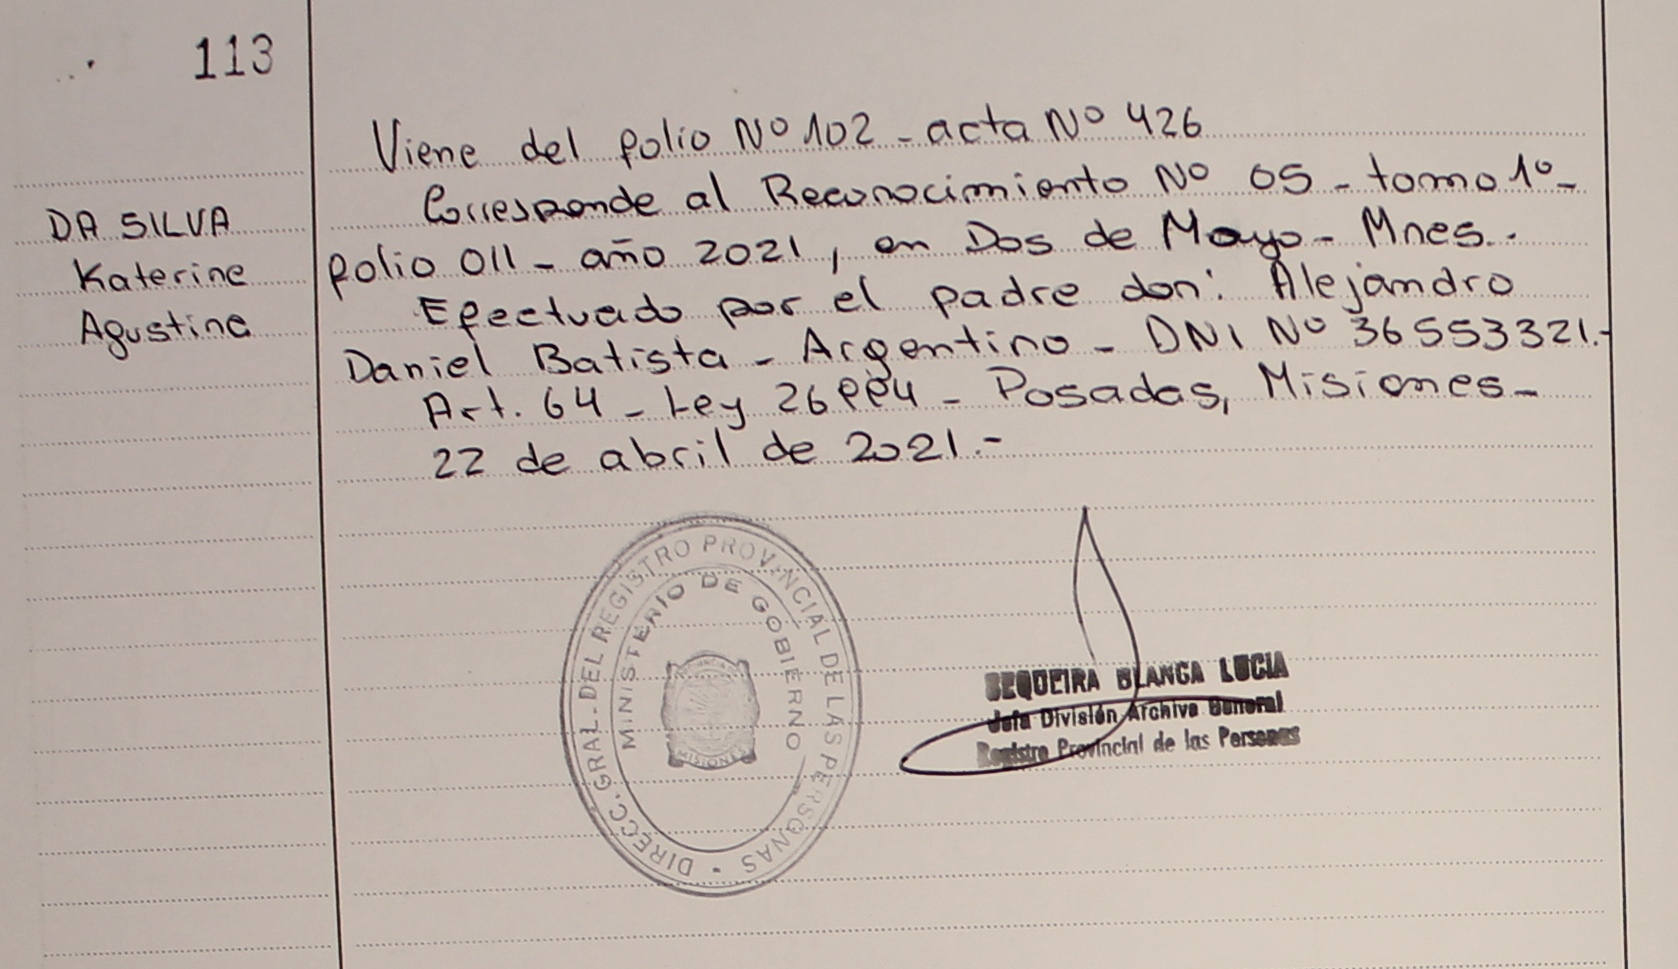 113
Viene del folio Nº 102 - acta Nº 426
Corresponde al Reconocimiento Nº 05 - tomo 1º -
DA SILVA
folio 011 - año 2021, en Dos de Mayo - Mnes..
Katerine
Efectuado por el padre don: Alejandro
Agustina
Daniel Batista - Argentino - DNI Nº 36553321.-
Art. 64 - Ley 26994 - Posadas, Misiones -
22 de abril de 2021.-
DIRECC. GRAL. DEL REGISTRO PROVINCIAL DE LAS PERSONAS
MINISTERIO DE GOBIERNO
MISIONES
SEQUEIRA BLANCA LUCIA
Jefa División Archivo General
Registro Provincial de las Personas